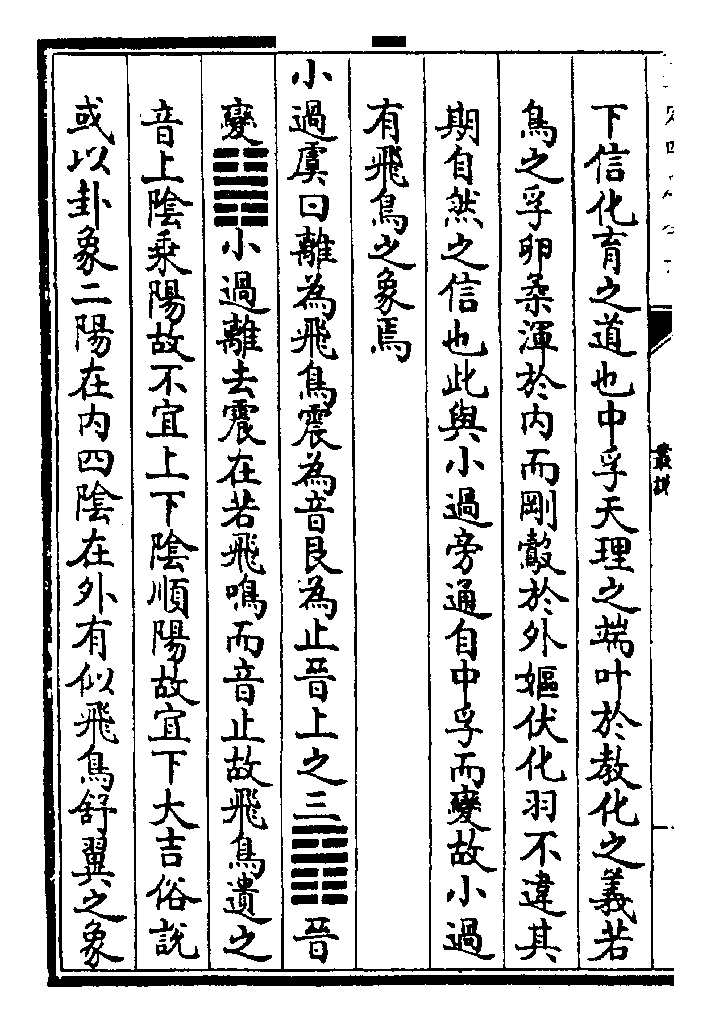 下信化育之道也中孚天理之端叶於教化之義若
鳥之孚卵柔渾於内而剛㲉於外嫗伏化羽不違其
期自然之信也此與小過旁通自中孚而變故小過
有飛鳥之象焉
小過虞曰離為飛鳥震為音艮為止晉上之三䷢晉
變䷽小過離去震在若飛鳴而音止故飛鳥遺之
音上陰乘陽故不宜上下陰順陽故宜下大吉俗說
或以卦象二陽在内四陰在外有似飛鳥舒翼之象